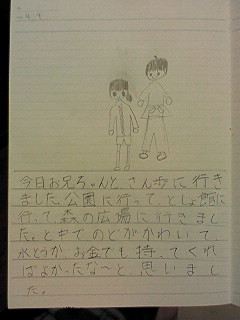 今日お兄ちゃんと、さん歩に行き
ました。公園に行って、としょ館に
行って、森の広場に行きまし
た。とチでのどがかわいて
水とうか、お金でも持ってくれ
ばよかったな〜と、思いまし
た。